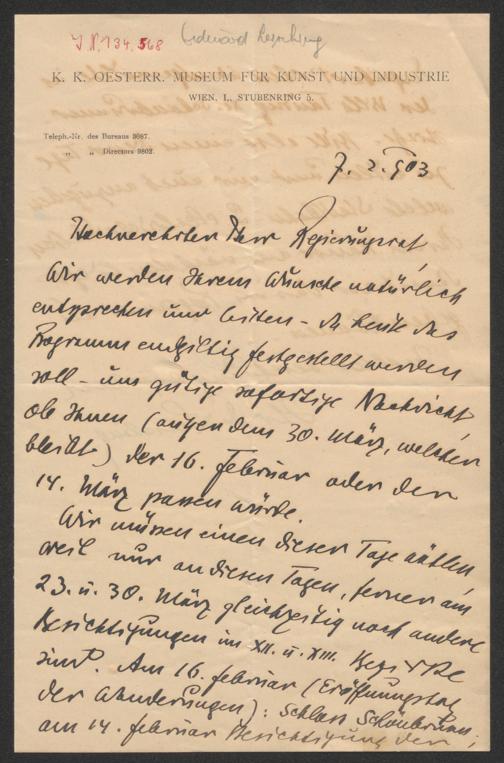 J.N. 134.568
Eduard Leisching
K. K. OESTERR. MUSEUM FÜR KUNST UND INDUSTRIE
WIEN, I., STUBENRING 5.
Teleph.-Nr. des Bureaus 3687.
„ „ Directors 9802.
7. 2. 903
Hochverehrter Herr Regierungsrat,
Wir werden Ihrem Wunsche natürlich
entsprechen und bitten – da heute das
Programm endgiltig festgestellt werden
soll – um gütige sofortige Nachricht,
ob Ihnen (außer dem 30. März, welcher
bleibt) der 16. Februar oder der
14. März passen würde.
Wir müssen einen dieser Tage wählen,
weil nur an diesen Tagen, ferner am
23. u. 30. März gleichzeitig noch andere
Besichtigungen im XII. u. XIII. Bezirke
sind. Am 16. Februar (Eröffnungstag
der Wanderungen): Schloss Schönbrunn;
am 14. Februar Besichtigung der